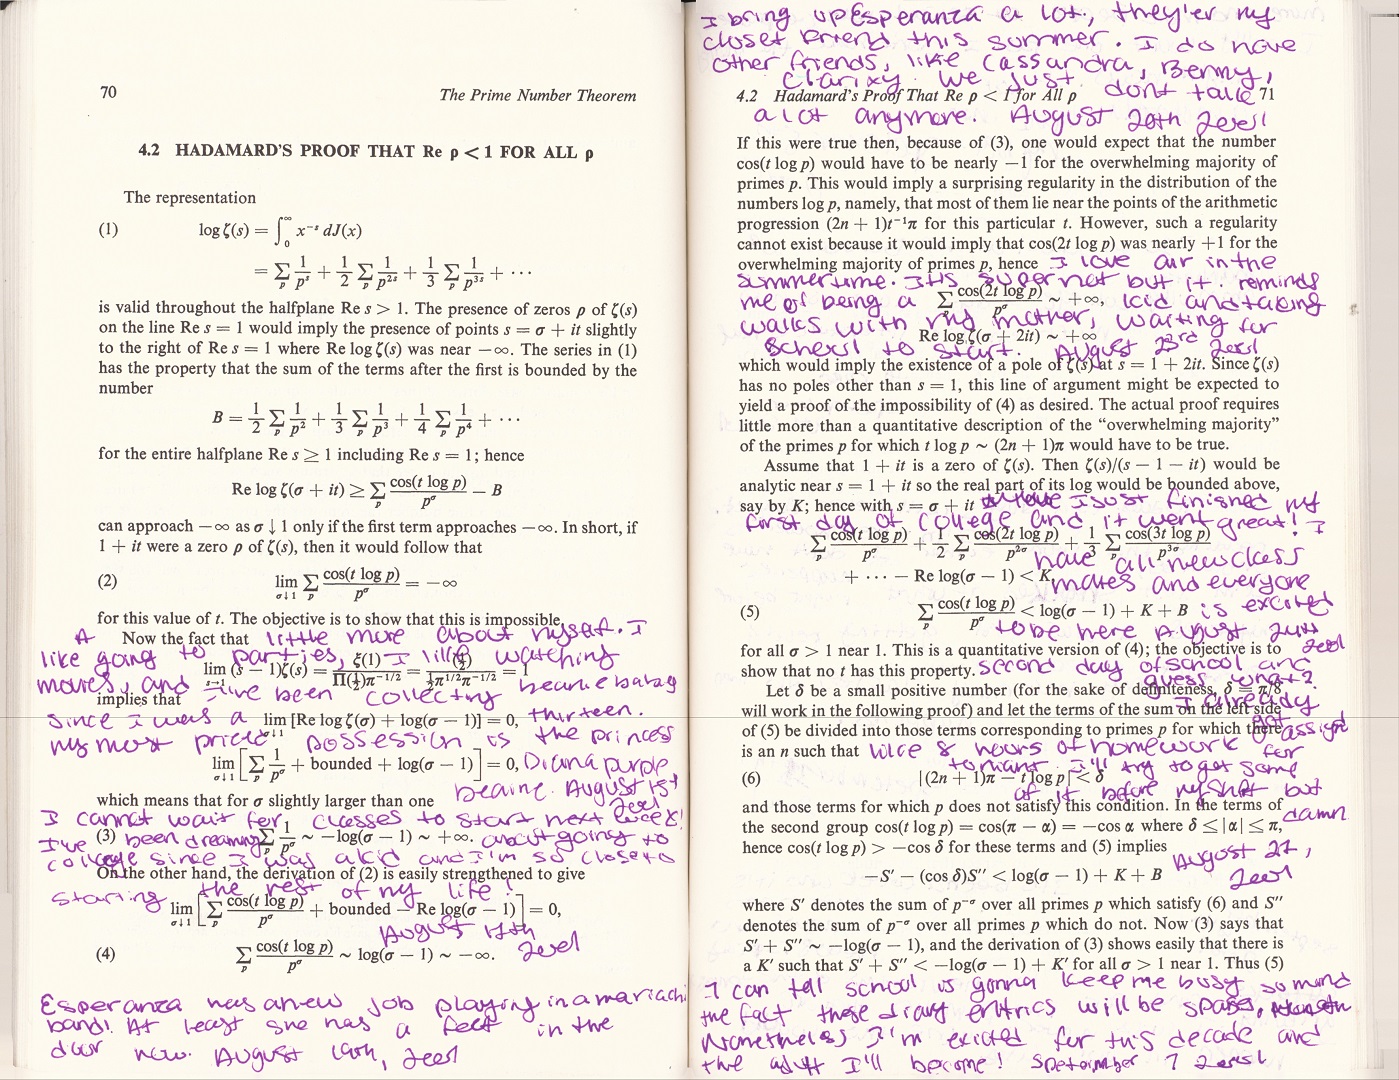 70
The Prime Number Theorem
4.2 HADAMARD'S PROOF THAT Re ρ < 1 FOR ALL ρ
The representation
(1) log ζ(s) = ∫₀^∞ x⁻ˢ dJ(x)
= Σ_p 1/pˢ + 1/2 Σ_p 1/p²ˢ + 1/3 Σ_p 1/p³ˢ + ⋯
is valid throughout the halfplane Re s > 1. The presence of zeros ρ of ζ(s)
on the line Re s = 1 would imply the presence of points s = σ + it slightly
to the right of Re s = 1 where Re log ζ(s) was near −∞. The series in (1)
has the property that the sum of the terms after the first is bounded by the
number
B = 1/2 Σ_p 1/p² + 1/3 Σ_p 1/p³ + 1/4 Σ_p 1/p⁴ + ⋯
for the entire halfplane Re s ≥ 1 including Re s = 1; hence
Re log ζ(σ + it) ≥ Σ_p cos(t log p)/p^σ − B
can approach −∞ as σ ↓ 1 only if the first term approaches −∞. In short, if
1 + it were a zero ρ of ζ(s), then it would follow that
(2) lim_{σ↓1} Σ_p cos(t log p)/p^σ = −∞
for this value of t. The objective is to show that this is impossible.
Now the fact that
A little more about myself. I
like going to parties, I like watching
lim_{s→1} (s − 1)ζ(s) = ξ(1)/Π(½)π^{−1/2} = (½)/½π^{1/2}π^{−1/2} = 1
movies, and I've been collecting beanie babys
implies that
since I was a thirteen.
lim_{σ↓1} [Re log ζ(σ) + log(σ − 1)] = 0,
my most pried possession is the princess
lim_{σ↓1} [Σ_p 1/p^σ + bounded + log(σ − 1)] = 0,
Diana purple
beaine. August 1st
2001
which means that for σ slightly larger than one
I cannot wait for classes to start next week!
(3) Σ_p 1/p^σ ~ −log(σ − 1) ~ +∞.
I've been dreaming about going to
college since I was a kid and I'm so close to
On the other hand, the derivation of (2) is easily strengthened to give
starting the rest of my life!
lim_{σ↓1} [Σ_p cos(t log p)/p^σ + bounded − Re log(σ − 1)] = 0,
August 17th
2001
(4) Σ_p cos(t log p)/p^σ ~ log(σ − 1) ~ −∞.
Esperanza has a new job playing in a mariachi
band! At least she has a foot in the
door now. August 19th, 2001
I bring up Esperanza a lot, they'er my
closet friend this summer. I do have
other friends, like Cassandra, Benny,
Clarixy. We just dont talk
4.2 Hadamard's Proof That Re ρ < 1 for All ρ
71
a lot anymore. August 20th 2001
If this were true then, because of (3), one would expect that the number
cos(t log p) would have to be nearly −1 for the overwhelming majority of
primes p. This would imply a surprising regularity in the distribution of the
numbers log p, namely, that most of them lie near the points of the arithmetic
progression (2n + 1)t⁻¹π for this particular t. However, such a regularity
cannot exist because it would imply that cos(2t log p) was nearly +1 for the
overwhelming majority of primes p, hence
I love air in the
summertime. It's super hot but it reminds
me of being a kid and taking
Σ_p cos(2t log p)/p^σ ~ +∞,
walks with my mother, waiting for
Re log ζ(σ + 2it) ~ +∞
school to start. August 23rd 2001
which would imply the existence of a pole of ζ(s) at s = 1 + 2it. Since ζ(s)
has no poles other than s = 1, this line of argument might be expected to
yield a proof of the impossibility of (4) as desired. The actual proof requires
little more than a quantitative description of the “overwhelming majority”
of the primes p for which t log p ~ (2n + 1)π would have to be true.
Assume that 1 + it is a zero of ζ(s). Then ζ(s)/(s − 1 − it) would be
analytic near s = 1 + it so the real part of its log would be bounded above,
say by K; hence with s = σ + it
I just finished my
first day of college and it went great! I
Σ_p cos(t log p)/p^σ + 1/2 Σ_p cos(2t log p)/p^{2σ} + 1/3 Σ_p cos(3t log p)/p^{3σ}
have all new class
+ ⋯ − Re log(σ − 1) < K,
mates and everyone
(5) Σ_p cos(t log p)/p^σ < log(σ − 1) + K + B
is excited
to be here August 24th
2001
for all σ > 1 near 1. This is a quantitative version of (4); the objective is to
show that no t has this property.
second day of school and
guess what?
Let δ be a small positive number (for the sake of definiteness, δ = π/8
I already
will work in the following proof) and let the terms of the sum on the left side
got assignd
of (5) be divided into those terms corresponding to primes p for which there
is an n such that
like 8 hours of homework for
tonight. I'll try to get some
(6) |(2n + 1)π − t log p| < δ
of it before my shift but
damn
and those terms for which p does not satisfy this condition. In the terms of
the second group cos(t log p) = cos(π − α) = −cos α where δ ≤ |α| ≤ π,
hence cos(t log p) > −cos δ for these terms and (5) implies
August 27,
2001
−S′ − (cos δ)S″ < log(σ − 1) + K + B
where S′ denotes the sum of p^{−σ} over all primes p which satisfy (6) and S″
denotes the sum of p^{−σ} over all primes p which do not. Now (3) says that
S′ + S″ ~ −log(σ − 1), and the derivation of (3) shows easily that there is
a K′ such that S′ + S″ < −log(σ − 1) + K′ for all σ > 1 near 1. Thus (5)
I can tell school is gonna keep me busy so mind
the fact these diary entrics will be spars,
Nonetheless I'm exicted for this decade and
the adult I'll become! Spetember 7 2001